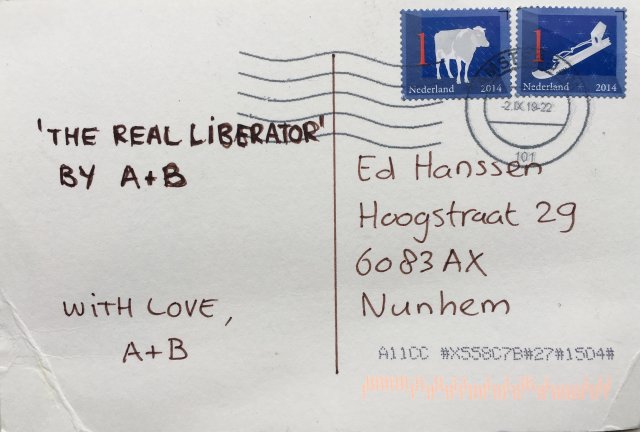 1
Nederland 2014
1
Nederland 2014
-2.IX.19-22
101
'THE REAL LIBERATOR'
BY A+B
Ed Hanssen
Hoogstraat 29
6083 AX
Nunhem
WITH LOVE,
A+B
A11CC #X558C7B#27#1504#